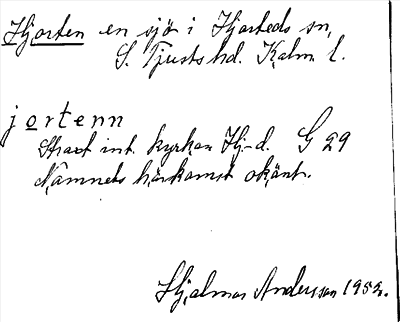 Hjorten en sjö i Hjorteds sn,
S. Tjusts hd. Kalm. l.
jortenn
Strax int. kyrkan Hj-d. G 29
Namnets härkomst okänt.
Hjalmar Andersson 1952.